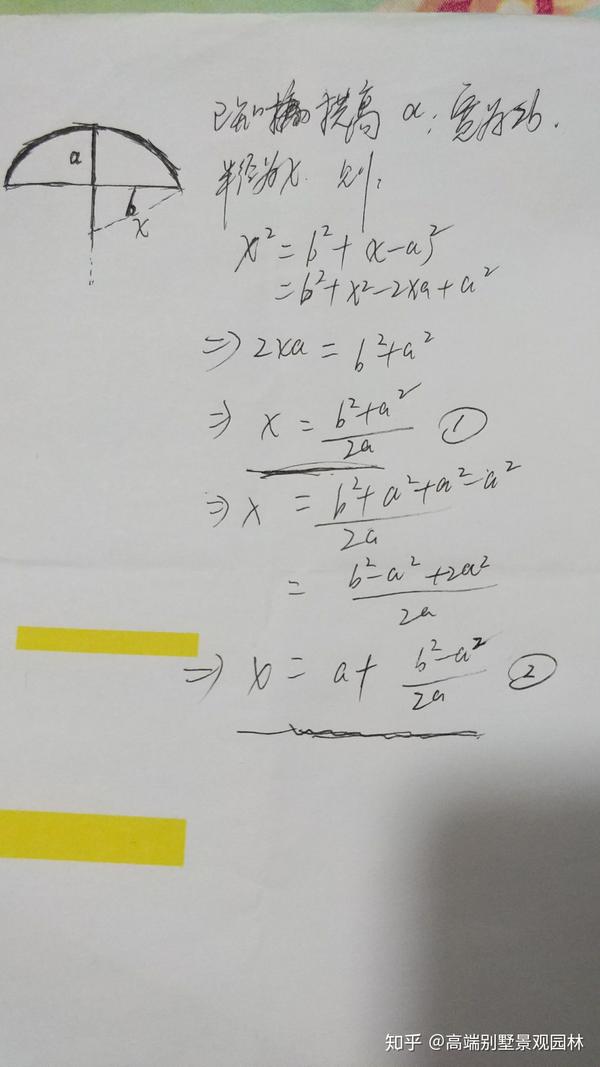 已知拱高 a, 宽为2b.
半径为x. 则:
a
b
x
x² = b² + (x-a)²
= b² + x² - 2xa + a²
⇒ 2xa = b² + a²
⇒ x = (b² + a²) / 2a ①
⇒ x = (b² + a² + a² - a²) / 2a
= (b² - a² + 2a²) / 2a
⇒ x = a + (b² - a²) / 2a ②
知乎 @高端别墅景观园林